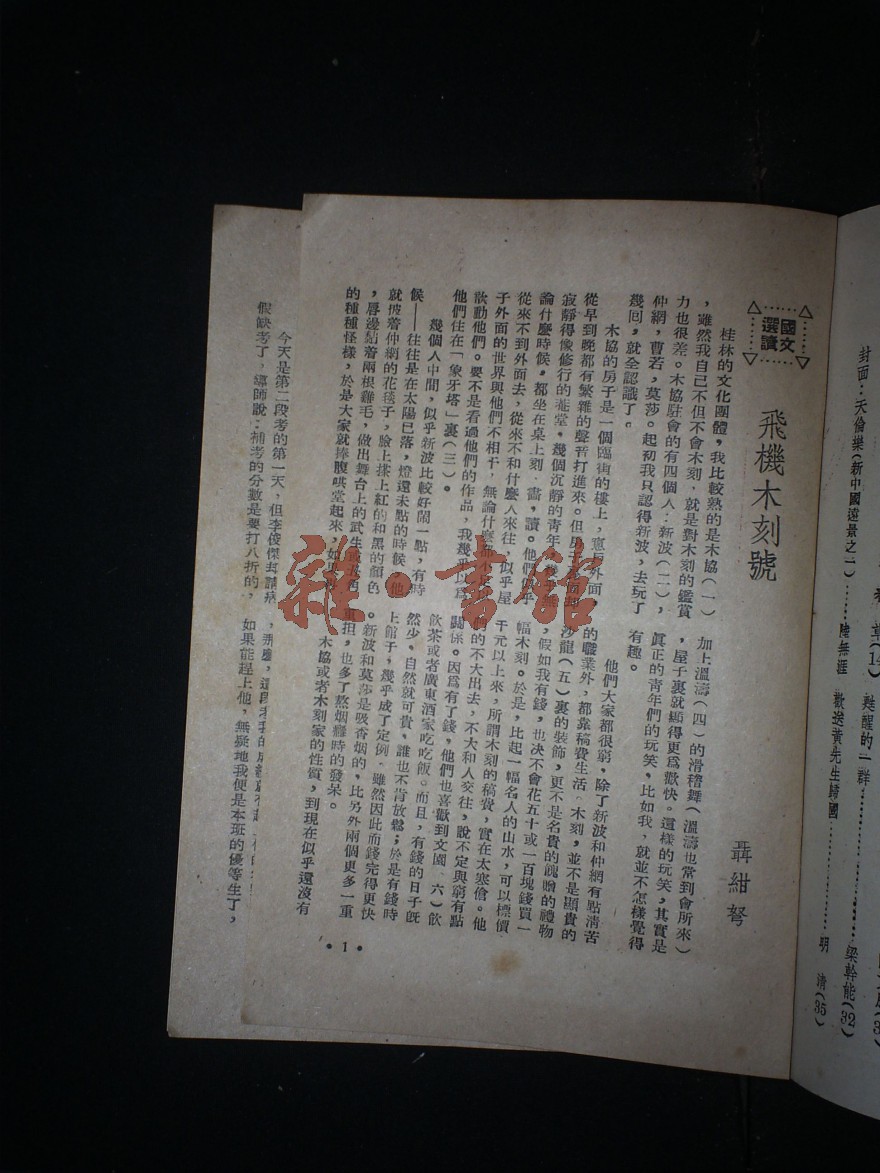 國文
選讀
飛機木刻號
聶紺弩
桂林的文化團體，我比較熟的是木協（一）
，雖然我自己不但不會木刻，就是對木刻的鑑賞
力也很差。木協駐會的有四個人：新波（二），
仲綱，曹若，莫莎。起初我只認得新波，去玩了
幾囘，就全認識了。
木協的房子是一個臨街的樓上，窗戶外面，
從早到晚都有繁雜的聲音打進來。但房子裏面却
寂靜得像修行的菴堂，幾個沉靜的青年，
論什麼時候，都坐在桌上刻，畫，讀。他們似乎
從來不到外面去，從來不和什麼人來往，似乎屋
子外面的世界與他們不相干，無論什麼都不足以
歆動他們。要不是看過他們的作品，我幾乎以爲
他們住在「象牙塔」裏（三）。
幾個人中間，似乎新波比較好鬧一點，有時
候——往往是在太陽已落，燈還未點的時候，他
就披着仲綱的花毯子，臉上搽上紅的和黑的顏色
，唇邊貼着兩根雞毛，做出舞台上的武生或丑角
的種種怪樣，於是大家就捧腹哄堂起來，如果再
加上溫濤（四）的滑稽舞（溫濤也常到會所來）
，屋子裏就顯得更爲歡快。這樣的玩笑，其實是
眞正的青年們的玩笑，比如我，就並不怎樣覺得
有趣。
他們大家都很窮，除了新波和仲綱有點清苦
的職業外，都靠稿費生活。木刻，並不是顯貴的
沙龍（五）裏的裝飾，更不是名貴的餽贈的禮物
，假如我有錢，也决不會花五十或一百塊錢買一
幅木刻。於是，比起一幅名人的山水，可以標價
千元以上來，所謂木刻的稿費，實在太寒傖。他
們的不大出去，不大和人交往，說不定與窮有點
關係。因爲有了錢，他們也喜歡到文園（六）飲
飲茶或者廣東酒家吃吃飯。而且，有錢的日子旣
然少，自然就可貴，誰也不肯放鬆；於是有錢時
上館子，幾乎成了定例。雖然因此而錢完得更快
。新波和莫莎是吸香烟的，比另外兩個更多一重
重担，也多了熬烟癮時的發呆。
木協或者木刻家的性質，到現在似乎還沒有
• 1 •
今天是第二段考的第一天，但李俊傑却請病
假缺考了，導師說：補考的分數是要打八折的，
如果能趕上他，無疑地我便是本班的優等生了，
封面：天倫樂（新中國遠景之一）……陸無涯
甦醒的一群……………梁幹能（32）
歡送黃先生歸國…………明 清（35）